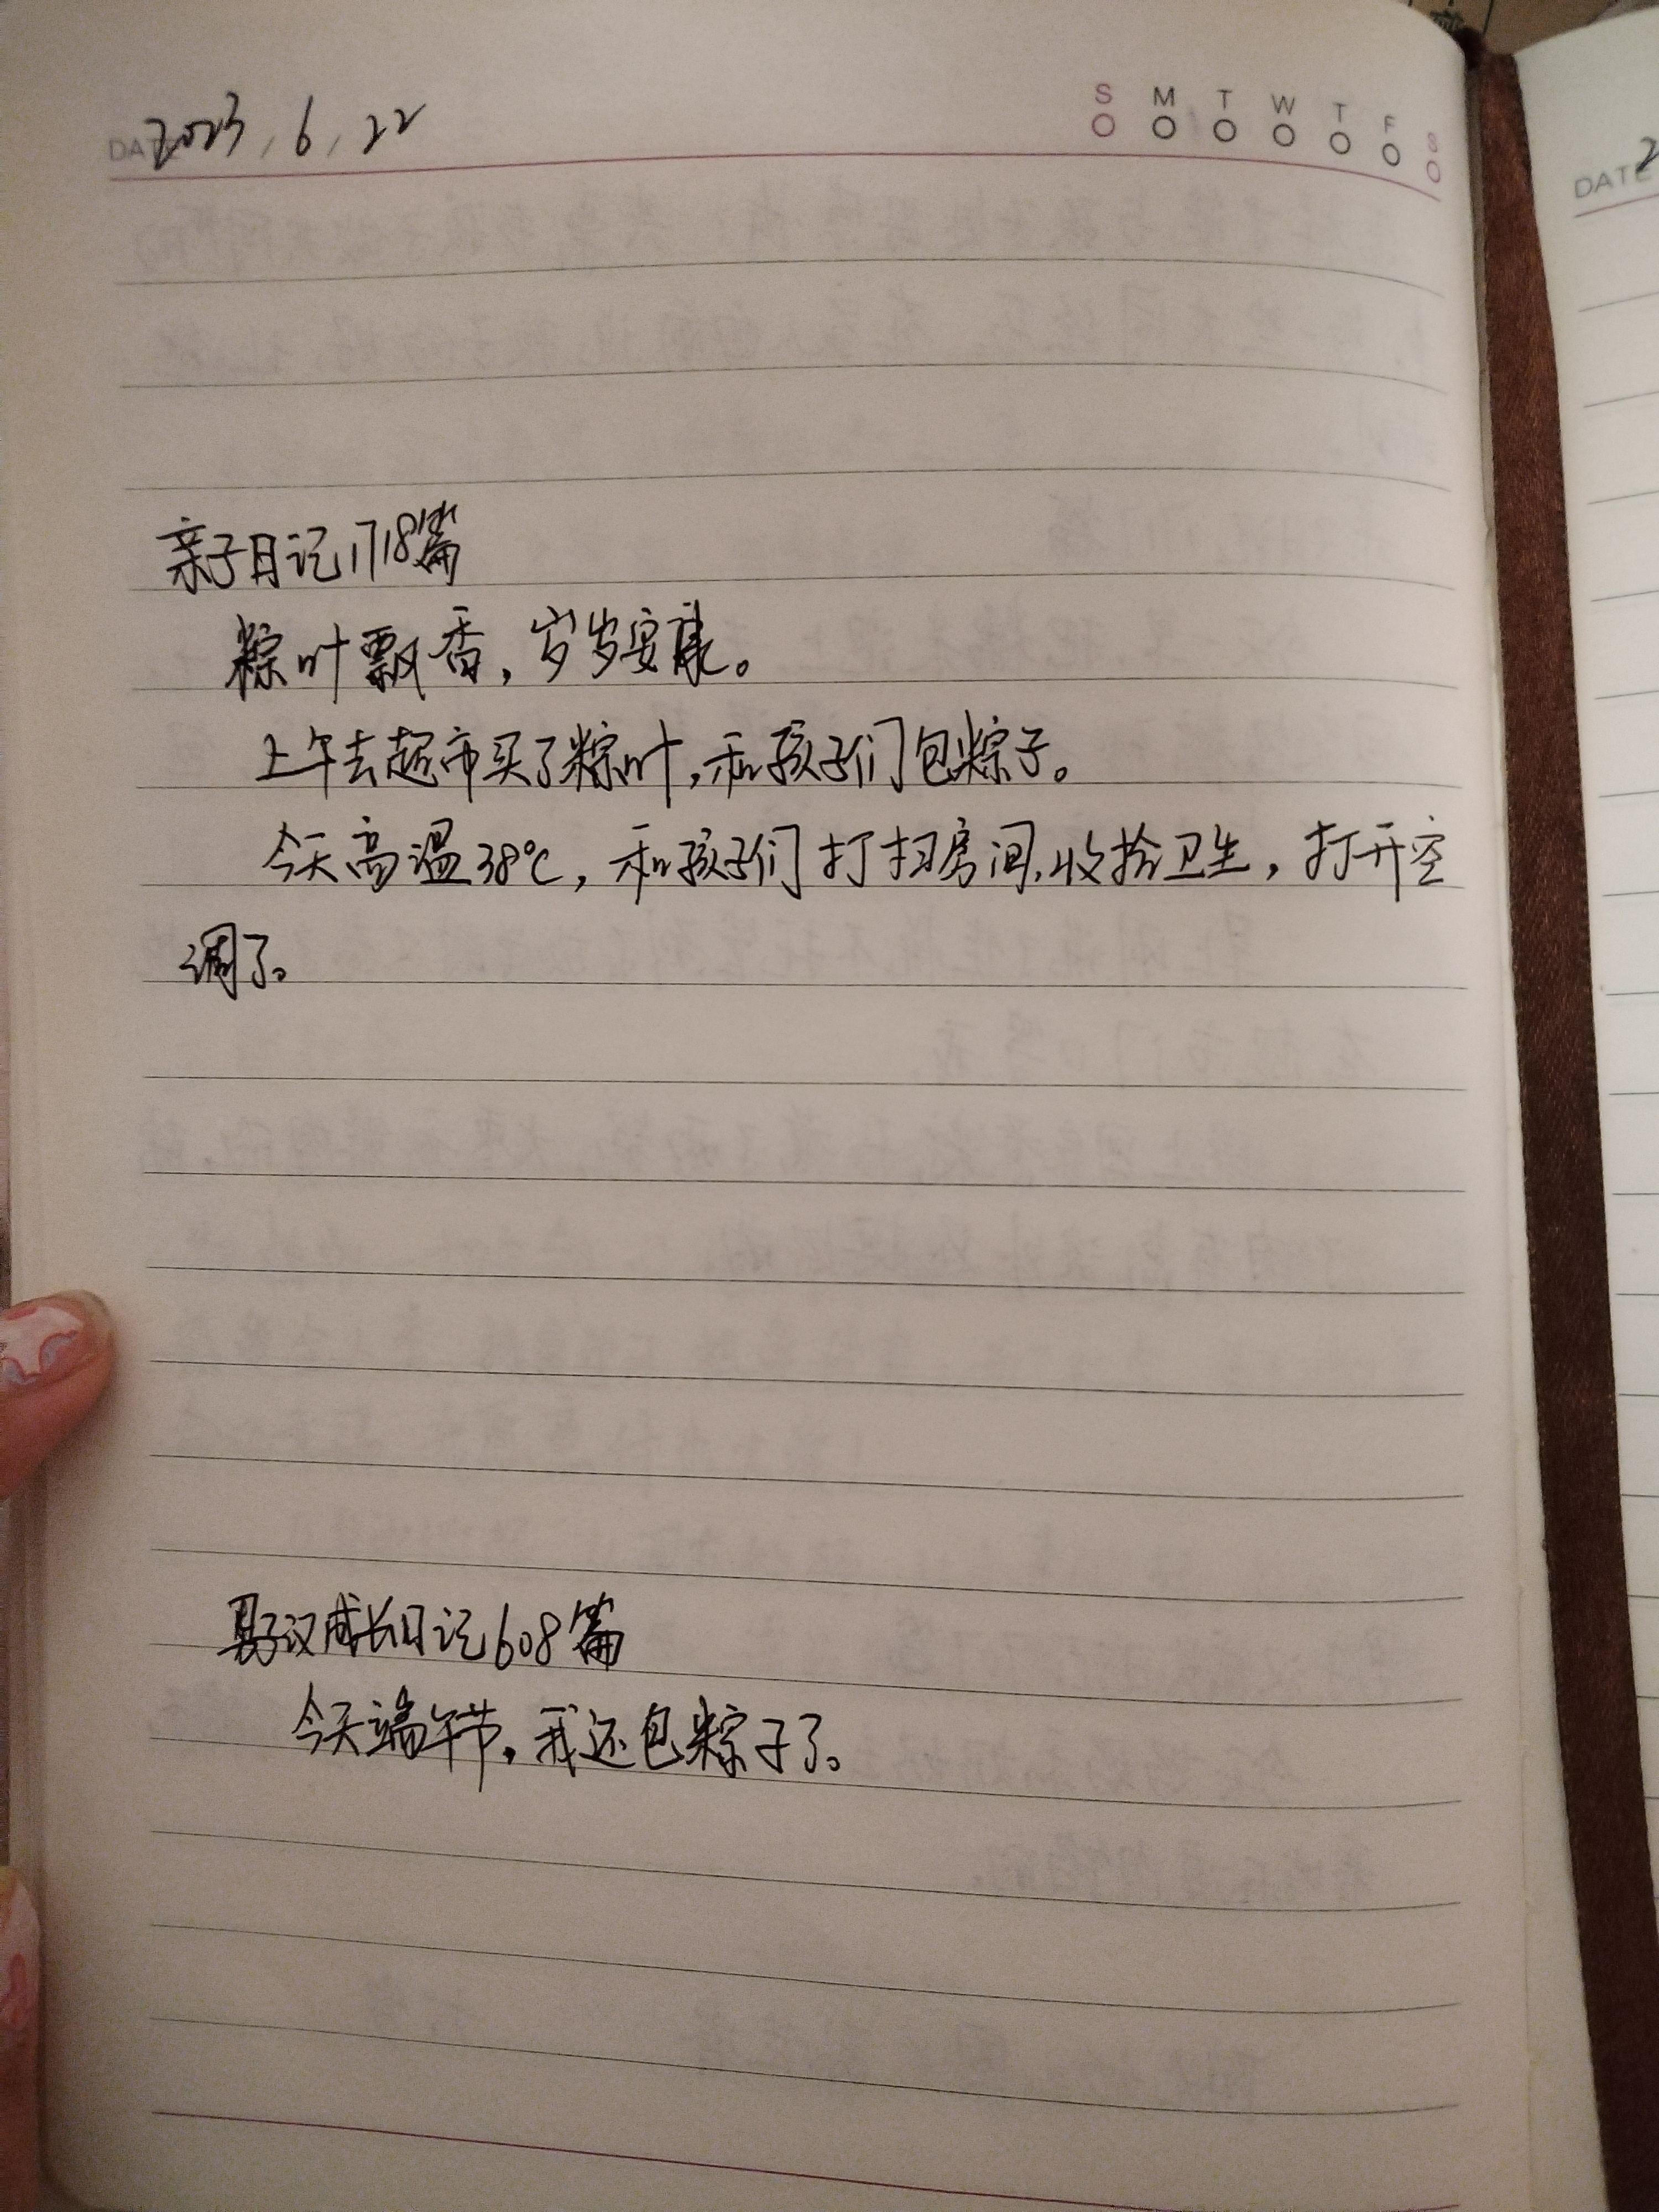 DATE 2023.6.22
S M T W T F S
亲子日记1718篇
粽叶飘香，岁岁安康。
上午去超市买了粽叶，和孩子们包粽子。
今天高温38℃，和孩子们打扫房间，收拾卫生，打开空
调了。
男子汉成长日记608篇
今天端午节，我还包粽子了。
DATE 2